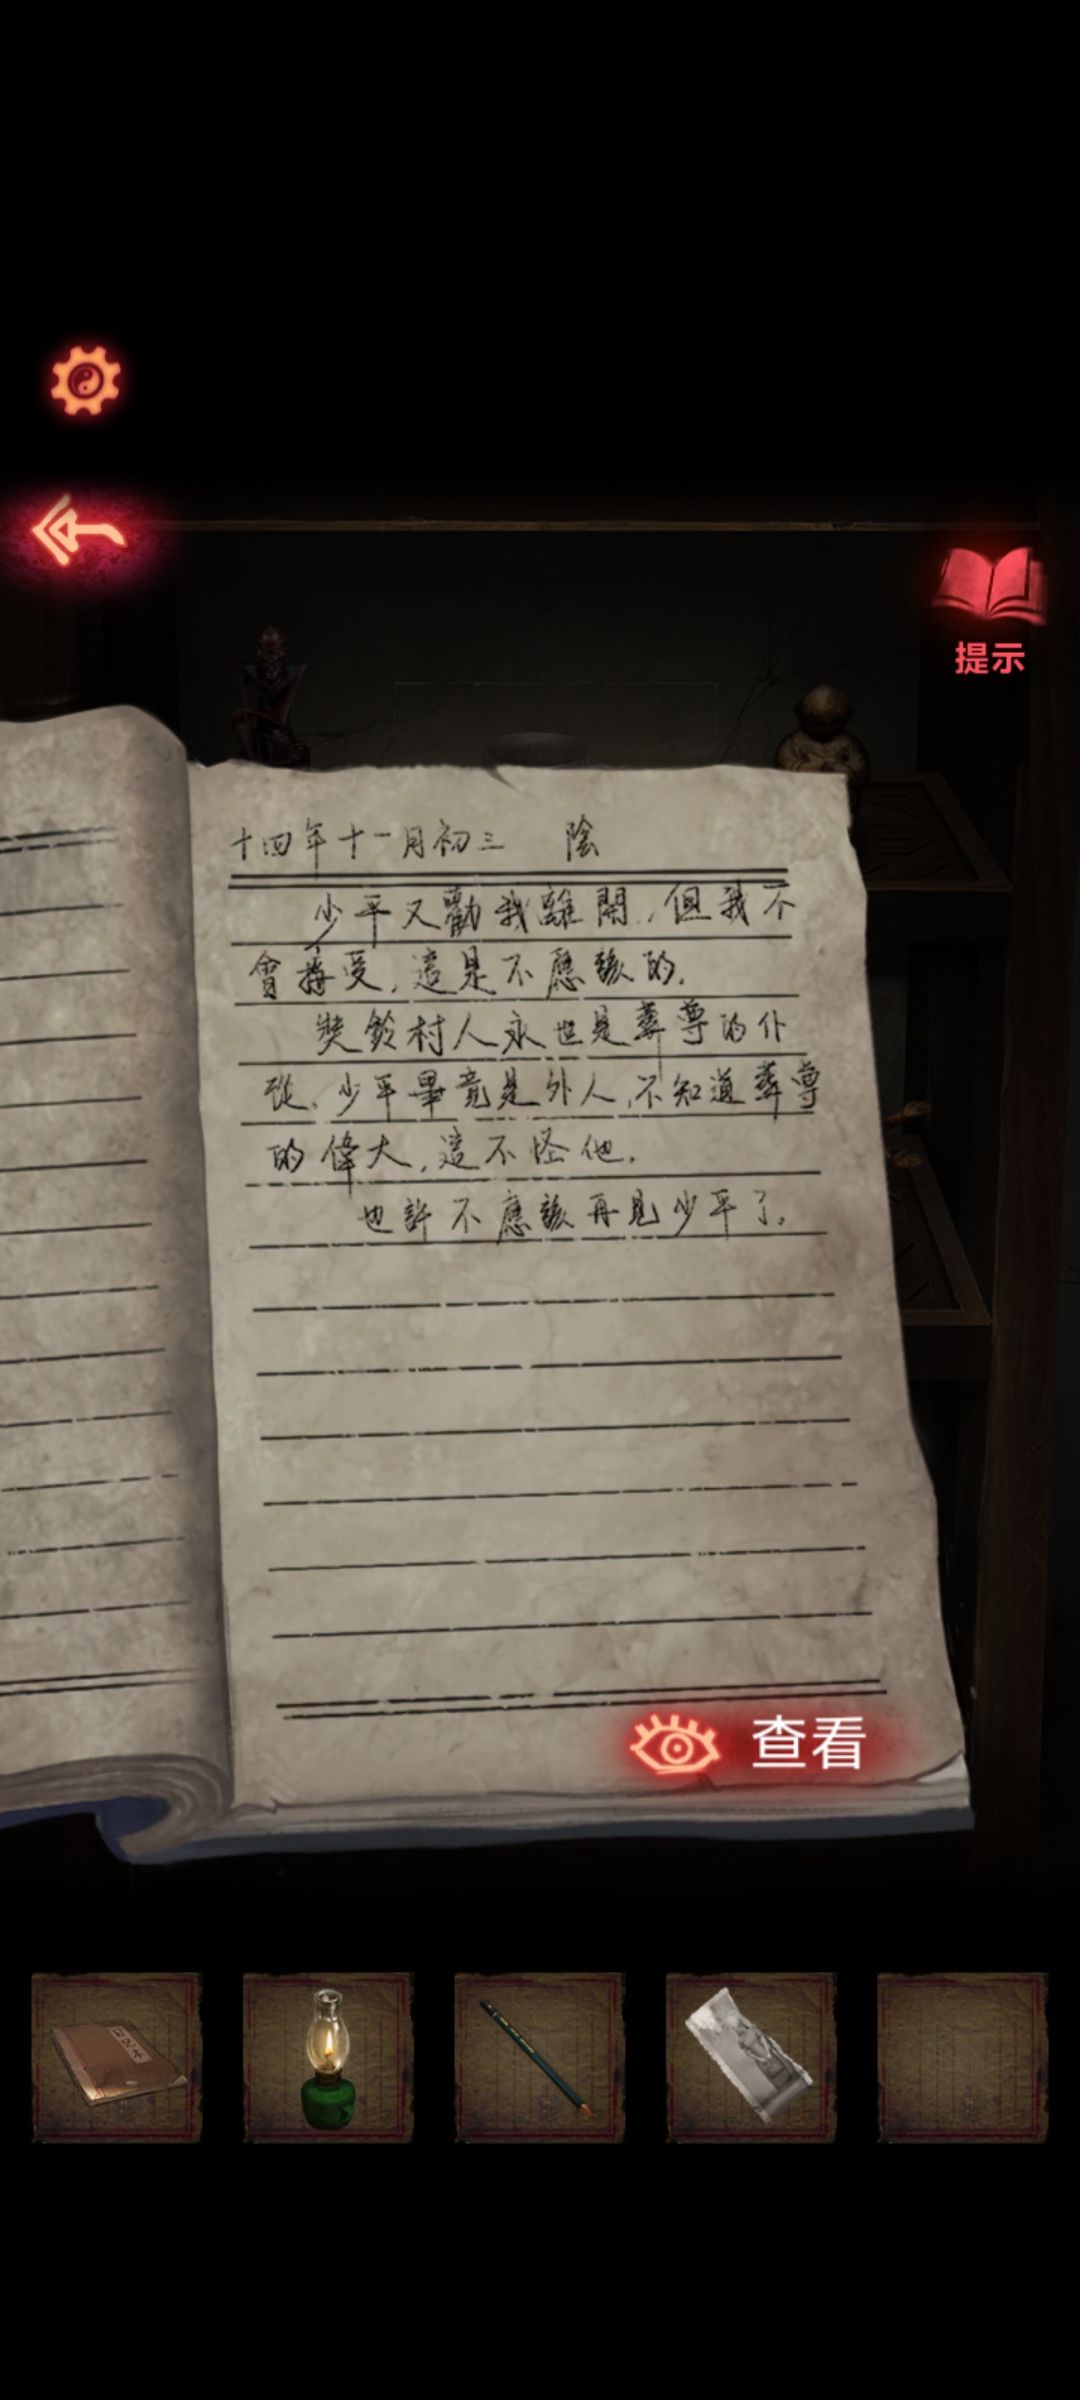 提示
十四年十一月初三 陰
少平又勸我離開,但我不
會接受,這是不應該的.
奘鈴村人永世是葬尊的仆
從.少平畢竟是外人,不知道葬尊
的偉大,這不怪他.
也許不應該再見少平了.
查看